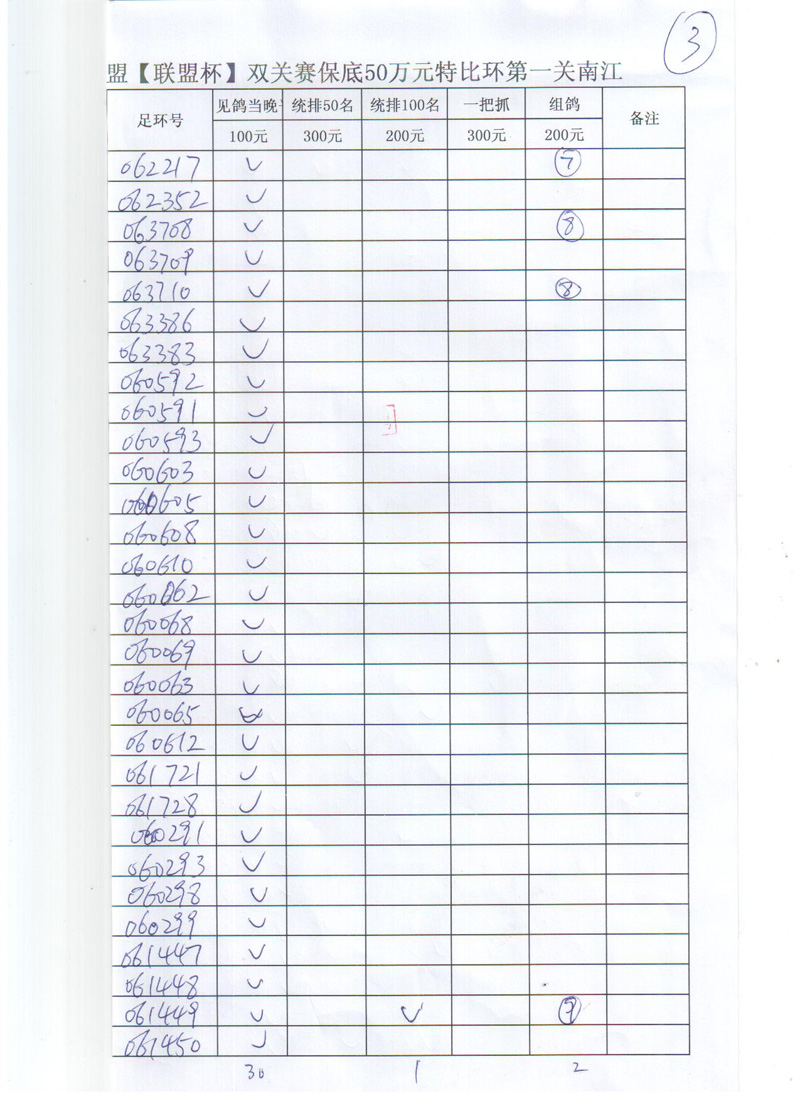 ③
盟【联盟杯】双关赛保底50万元特比环第一关南江
足环号 见鸽当晚 统排50名 统排100名 一把抓 组鸽 备注
100元 300元 200元 300元 200元
062217 ✓ ⑦
062352 ✓
063708 ✓ ⑧
063709 ✓
063710 ✓ ⑧
063386 ✓
063383 ✓
060592 ✓
060591 ✓
060593 ✓
060603 ✓
060605 ✓
060608 ✓
060610 ✓
060062 ✓
060068 ✓
060069 ✓
060063 ✓
060065 ✓
060612 ✓
061721 ✓
061728 ✓
060291 ✓
060293 ✓
060298 ✓
060299 ✓
061447 ✓
061448 ✓
061449 ✓ ✓ ⑦
061450 ✓
30 1 2